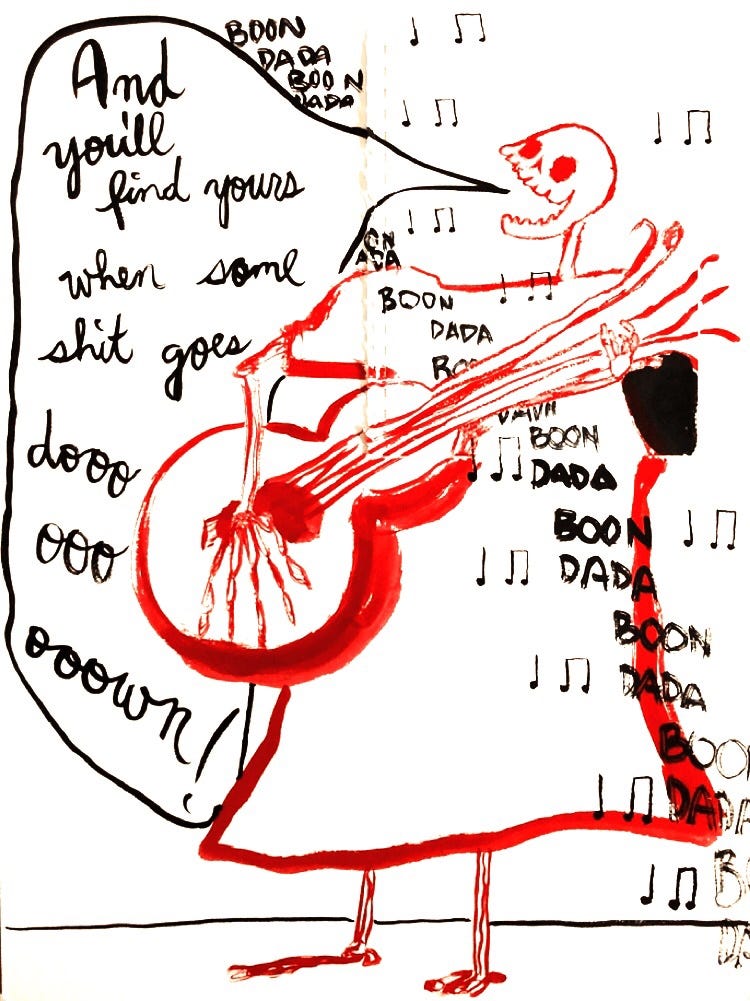 And
you'll
find yours
when some
shit goes
dooo
ooo
ooown!
BOON
DADA
BOON
DADA
ON
ADA
BOON
DADA
BOO
BOON
DADA
BOON
DADA
BOON
DADA
BOON
DADA